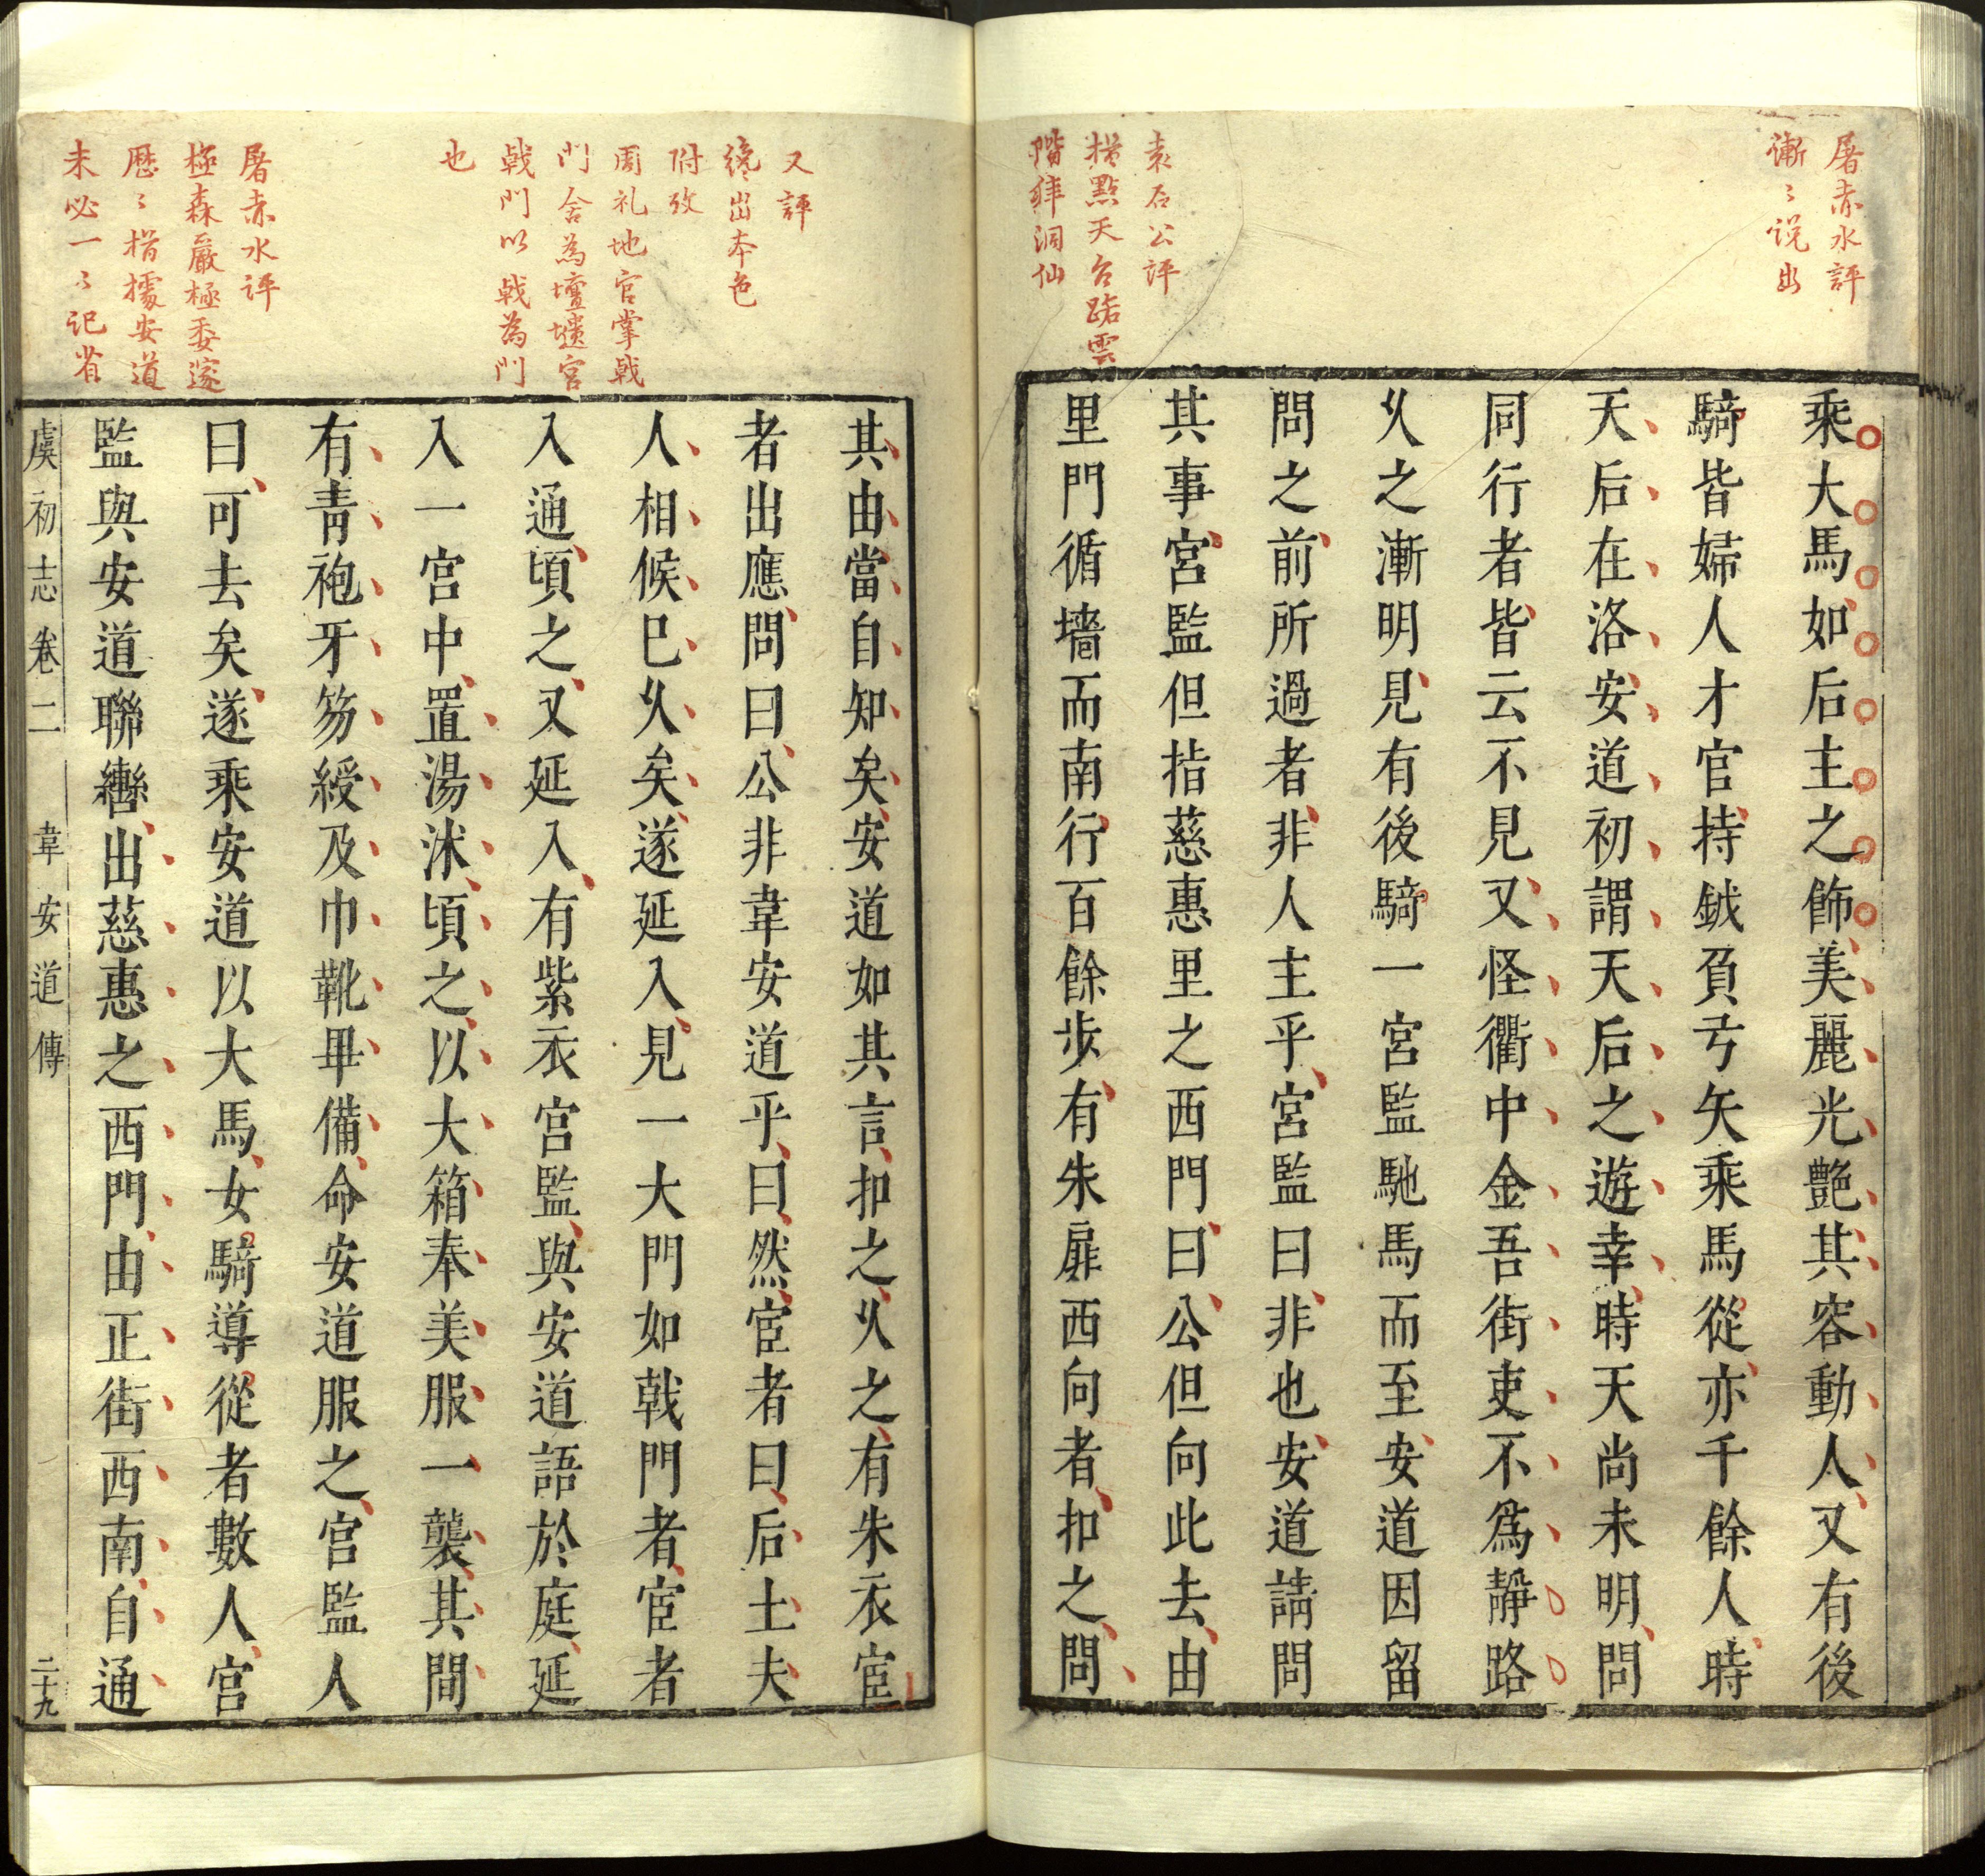 屠赤水評
漸〻說出
袁石公評
指點天台路雲
階拜洞仙
乘大馬如后主之飾美麗光艷其容動人又有後
騎皆婦人才官持鉞負弓矢乘馬從亦千餘人時
天后在洛安道初謂天后之遊幸時天尚未明問
同行者皆云不見又怪衢中金吾街吏不爲靜路
乆之漸明見有後騎一宮監馳馬而至安道因留
問之前所過者非人主乎宮監曰非也安道請問
其事宮監但指慈惠里之西門曰公但向此去由
里門循墻而南行百餘步有朱扉西向者扣之問
又評
纔出本色
附攷
周礼地官掌戟
門舍為壇壝宮
戟門以戟為門
也
屠赤水評
極森嚴極委邃
歷〻指據安道
未必一〻记省
其由當自知矣安道如其言扣之乆之有朱衣宦
者出應問曰公非韋安道乎曰然宦者曰后土夫
人相候巳乆矣遂延入見一大門如戟門者宦者
入通頃之又延入有紫衣宮監與安道語於庭延
入一宮中置湯沐頃之以大箱奉美服一襲其間
有青袍牙笏綬及巾靴畢備命安道服之宮監人
曰可去矣遂乘安道以大馬女騎導從者數人宮
監與安道聯轡出慈惠之西門由正街西南自通
虞初志卷二 韋安道傳 二十九